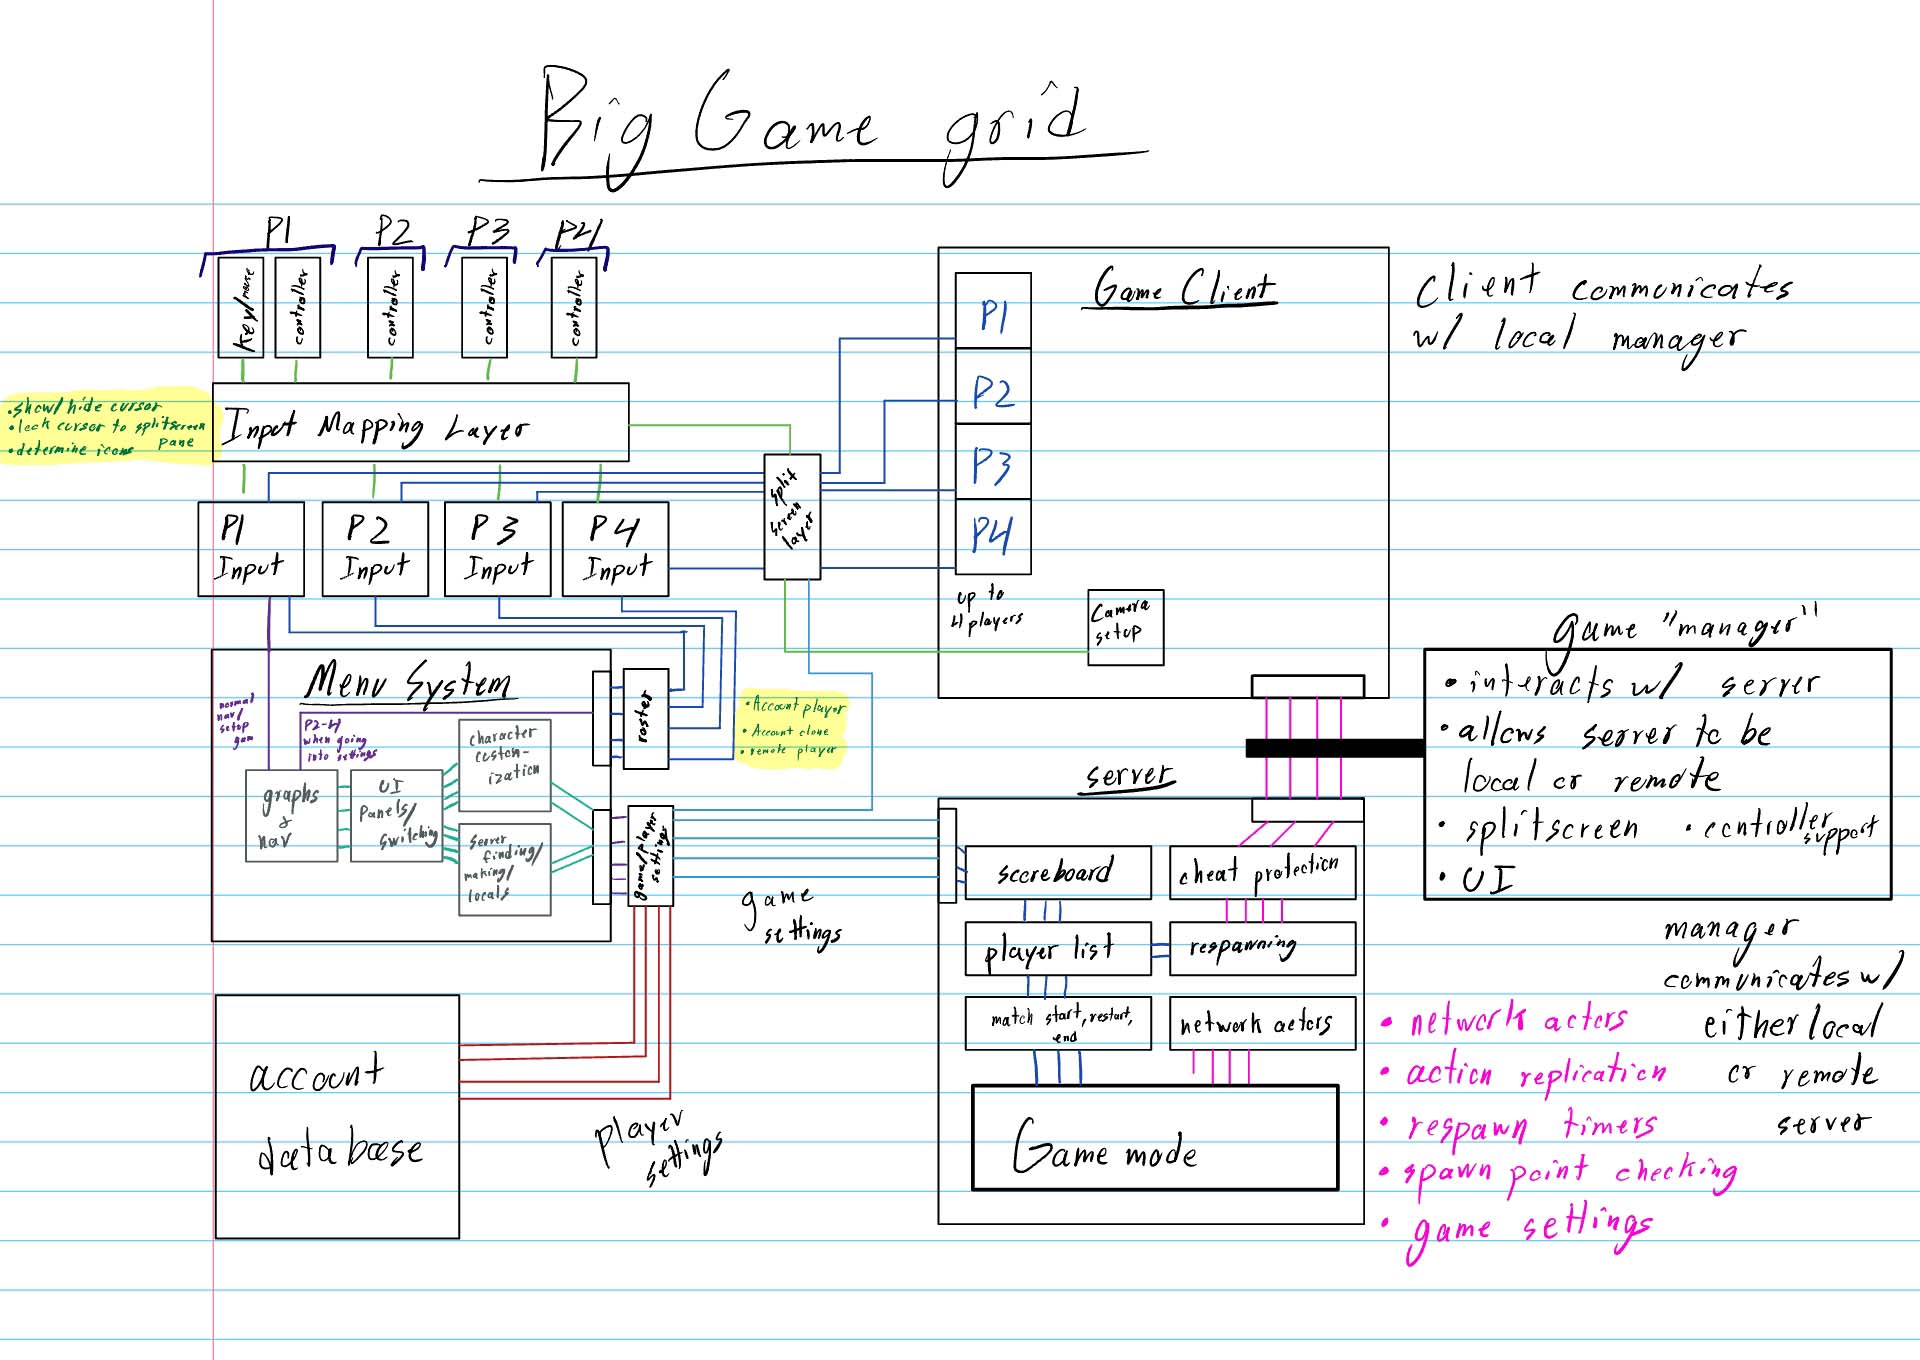 Big Game grid
P1
P2
P3
P4
key/mouse
controller
controller
controller
controller
• show/hide cursor
• lock cursor to splitscreen
pane
• determine icons
Input Mapping Layer
P1
Input
P2
Input
P3
Input
P4
Input
split
screen
layer
Game Client
P1
P2
P3
P4
up to
4 players
Camera
setup
Client communicates
w/ local manager
Menu System
normal
nav/
setup
gam
P2-4
when going
into settings
graphs
&
nav
UI
panels/
switching
character
custom-
ization
Server
finding/
making/
locals
roster
• Account player
• Account clone
• remote player
game/player
settings
game
settings
account
database
player
settings
server
scoreboard
cheat protection
player list
respawning
match start, restart,
end
network actors
Game mode
game "manager"
• interacts w/ server
• allows server to be
local or remote
• splitscreen
• controller
support
• UI
manager
communicates w/
either local
or remote
server
• network actors
• action replication
• respawn timers
• spawn point checking
• game settings